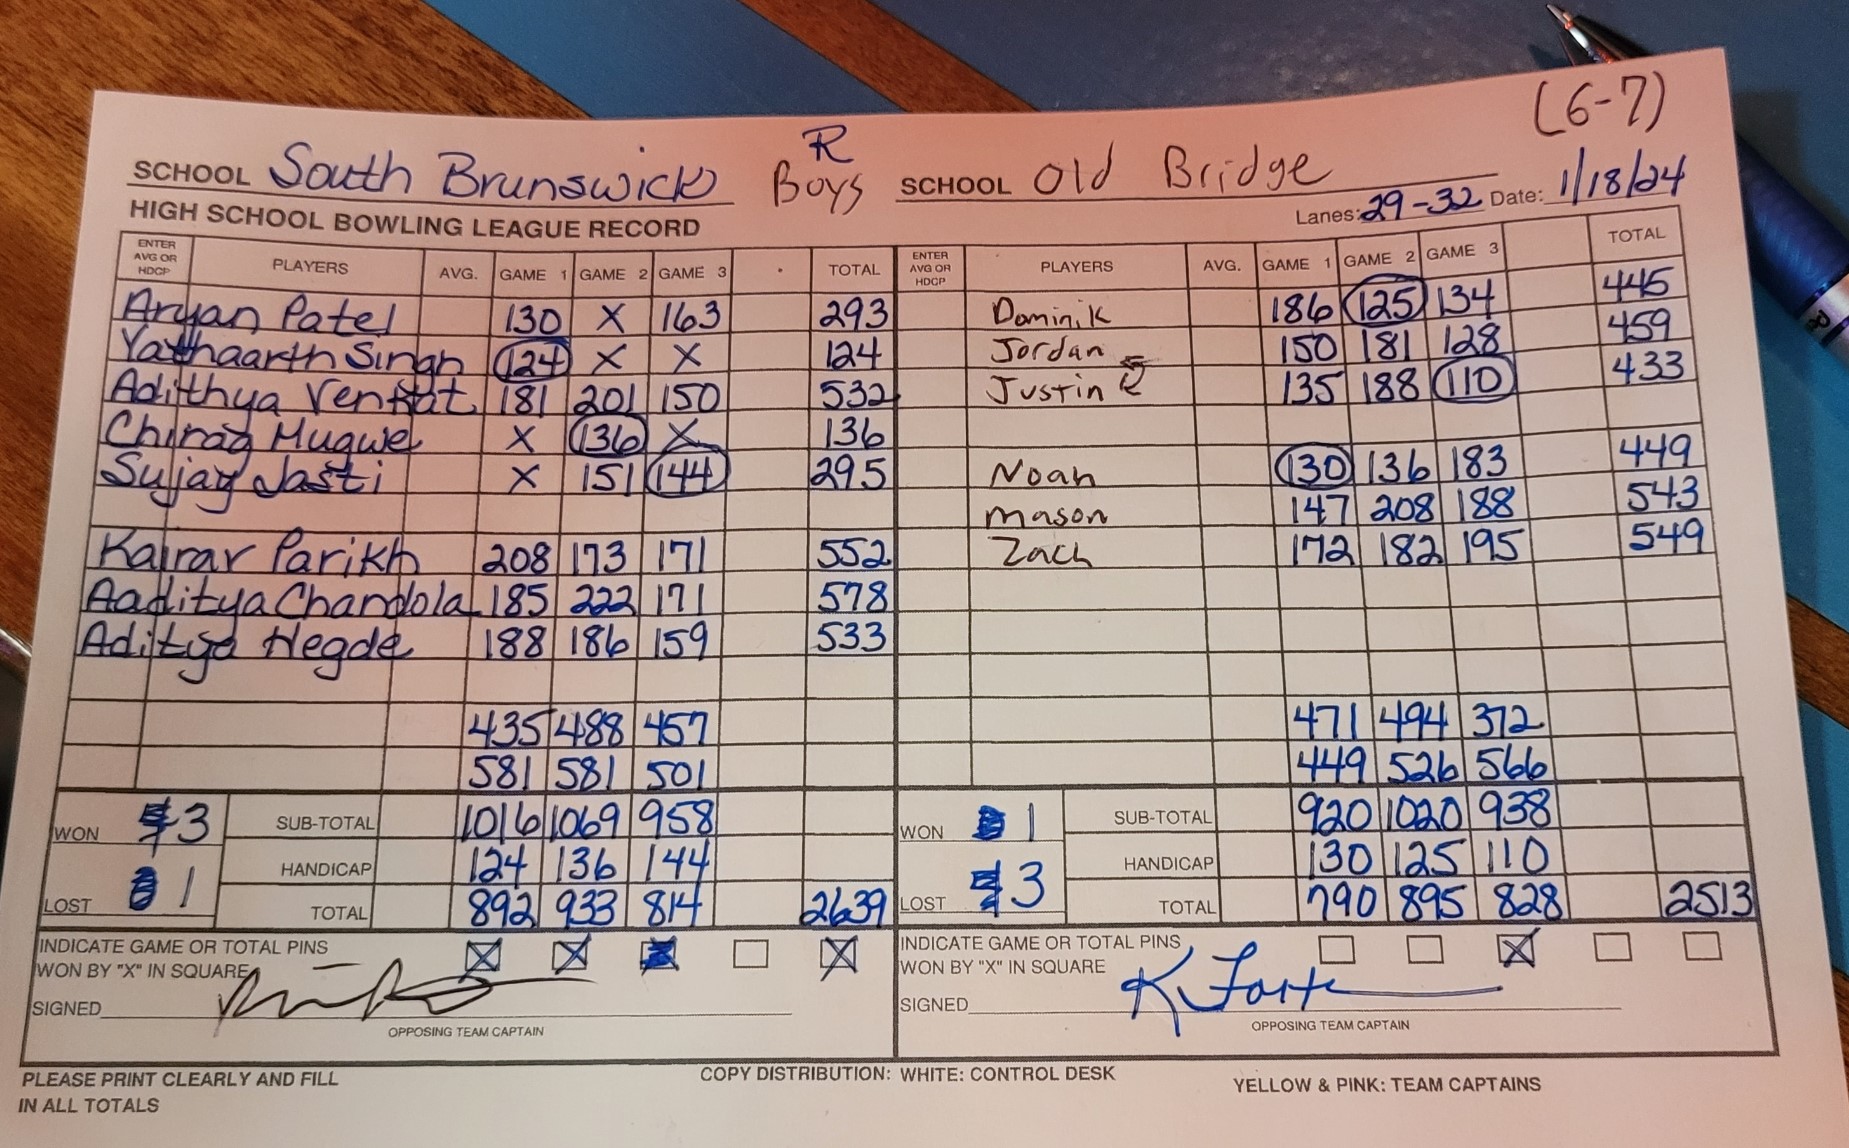 (6-7)
R
SCHOOL South Brunswick Boys SCHOOL Old Bridge
HIGH SCHOOL BOWLING LEAGUE RECORD Lanes: 29-32 Date: 1/18/24
ENTER AVG OR HDCP PLAYERS AVG. GAME 1 GAME 2 GAME 3 TOTAL ENTER AVG OR HDCP PLAYERS AVG. GAME 1 GAME 2 GAME 3 TOTAL
Aryan Patel 130 X 163 293 Dominik 186 125 134 445
Yathaarth Singh 124 X X 124 Jordan 150 181 128 459
Adithya Venkat 181 201 150 532 Justin R 135 188 110 433
Chirag Mugwe X 136 X 136
Sujay Jasti X 151 144 295 Noah 130 136 183 449
Mason 147 208 188 543
Kairav Parikh 208 173 171 552 Zach 172 182 195 549
Aaditya Chandola 185 222 171 578
Aditya Hegde 188 186 159 533
435 488 457 471 494 372
581 581 501 449 526 566
WON 3 SUB-TOTAL 1016 1069 958 WON 1 SUB-TOTAL 920 1020 938
HANDICAP 124 136 144 HANDICAP 130 125 110
LOST 1 TOTAL 892 933 814 2639 LOST 3 TOTAL 790 895 828 2513
INDICATE GAME OR TOTAL PINS WON BY "X" IN SQUARE X X X INDICATE GAME OR TOTAL PINS WON BY "X" IN SQUARE X
SIGNED SIGNED K Forte
OPPOSING TEAM CAPTAIN OPPOSING TEAM CAPTAIN
PLEASE PRINT CLEARLY AND FILL COPY DISTRIBUTION: WHITE: CONTROL DESK YELLOW & PINK: TEAM CAPTAINS
IN ALL TOTALS